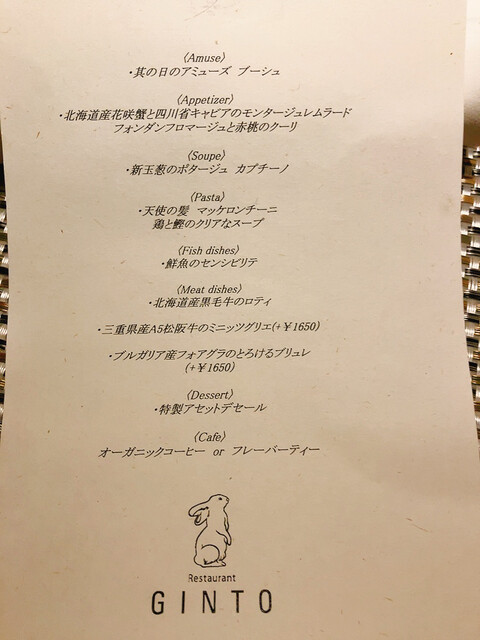 〈Amuse〉
・其の日のアミューズ ブーシュ
〈Appetizer〉
・北海道産花咲蟹と四川省キャビアのモンタージュレムラード
フォンダンフロマージュと赤桃のクーリ
〈Soupe〉
・新玉葱のポタージュ カプチーノ
〈Pasta〉
・天使の髪 マッケロンチーニ
鶏と鰹のクリアなスープ
〈Fish dishes〉
・鮮魚のセンシビリテ
〈Meat dishes〉
・北海道産黒毛牛のロティ
・三重県産A5松阪牛のミニッツグリエ(+￥1650)
・ブルガリア産フォアグラのとろけるブリュレ
(+￥1650)
〈Dessert〉
・特製アセットデセール
〈Cafe〉
オーガニックコーヒー or フレーバーティー
Restaurant
GINTO